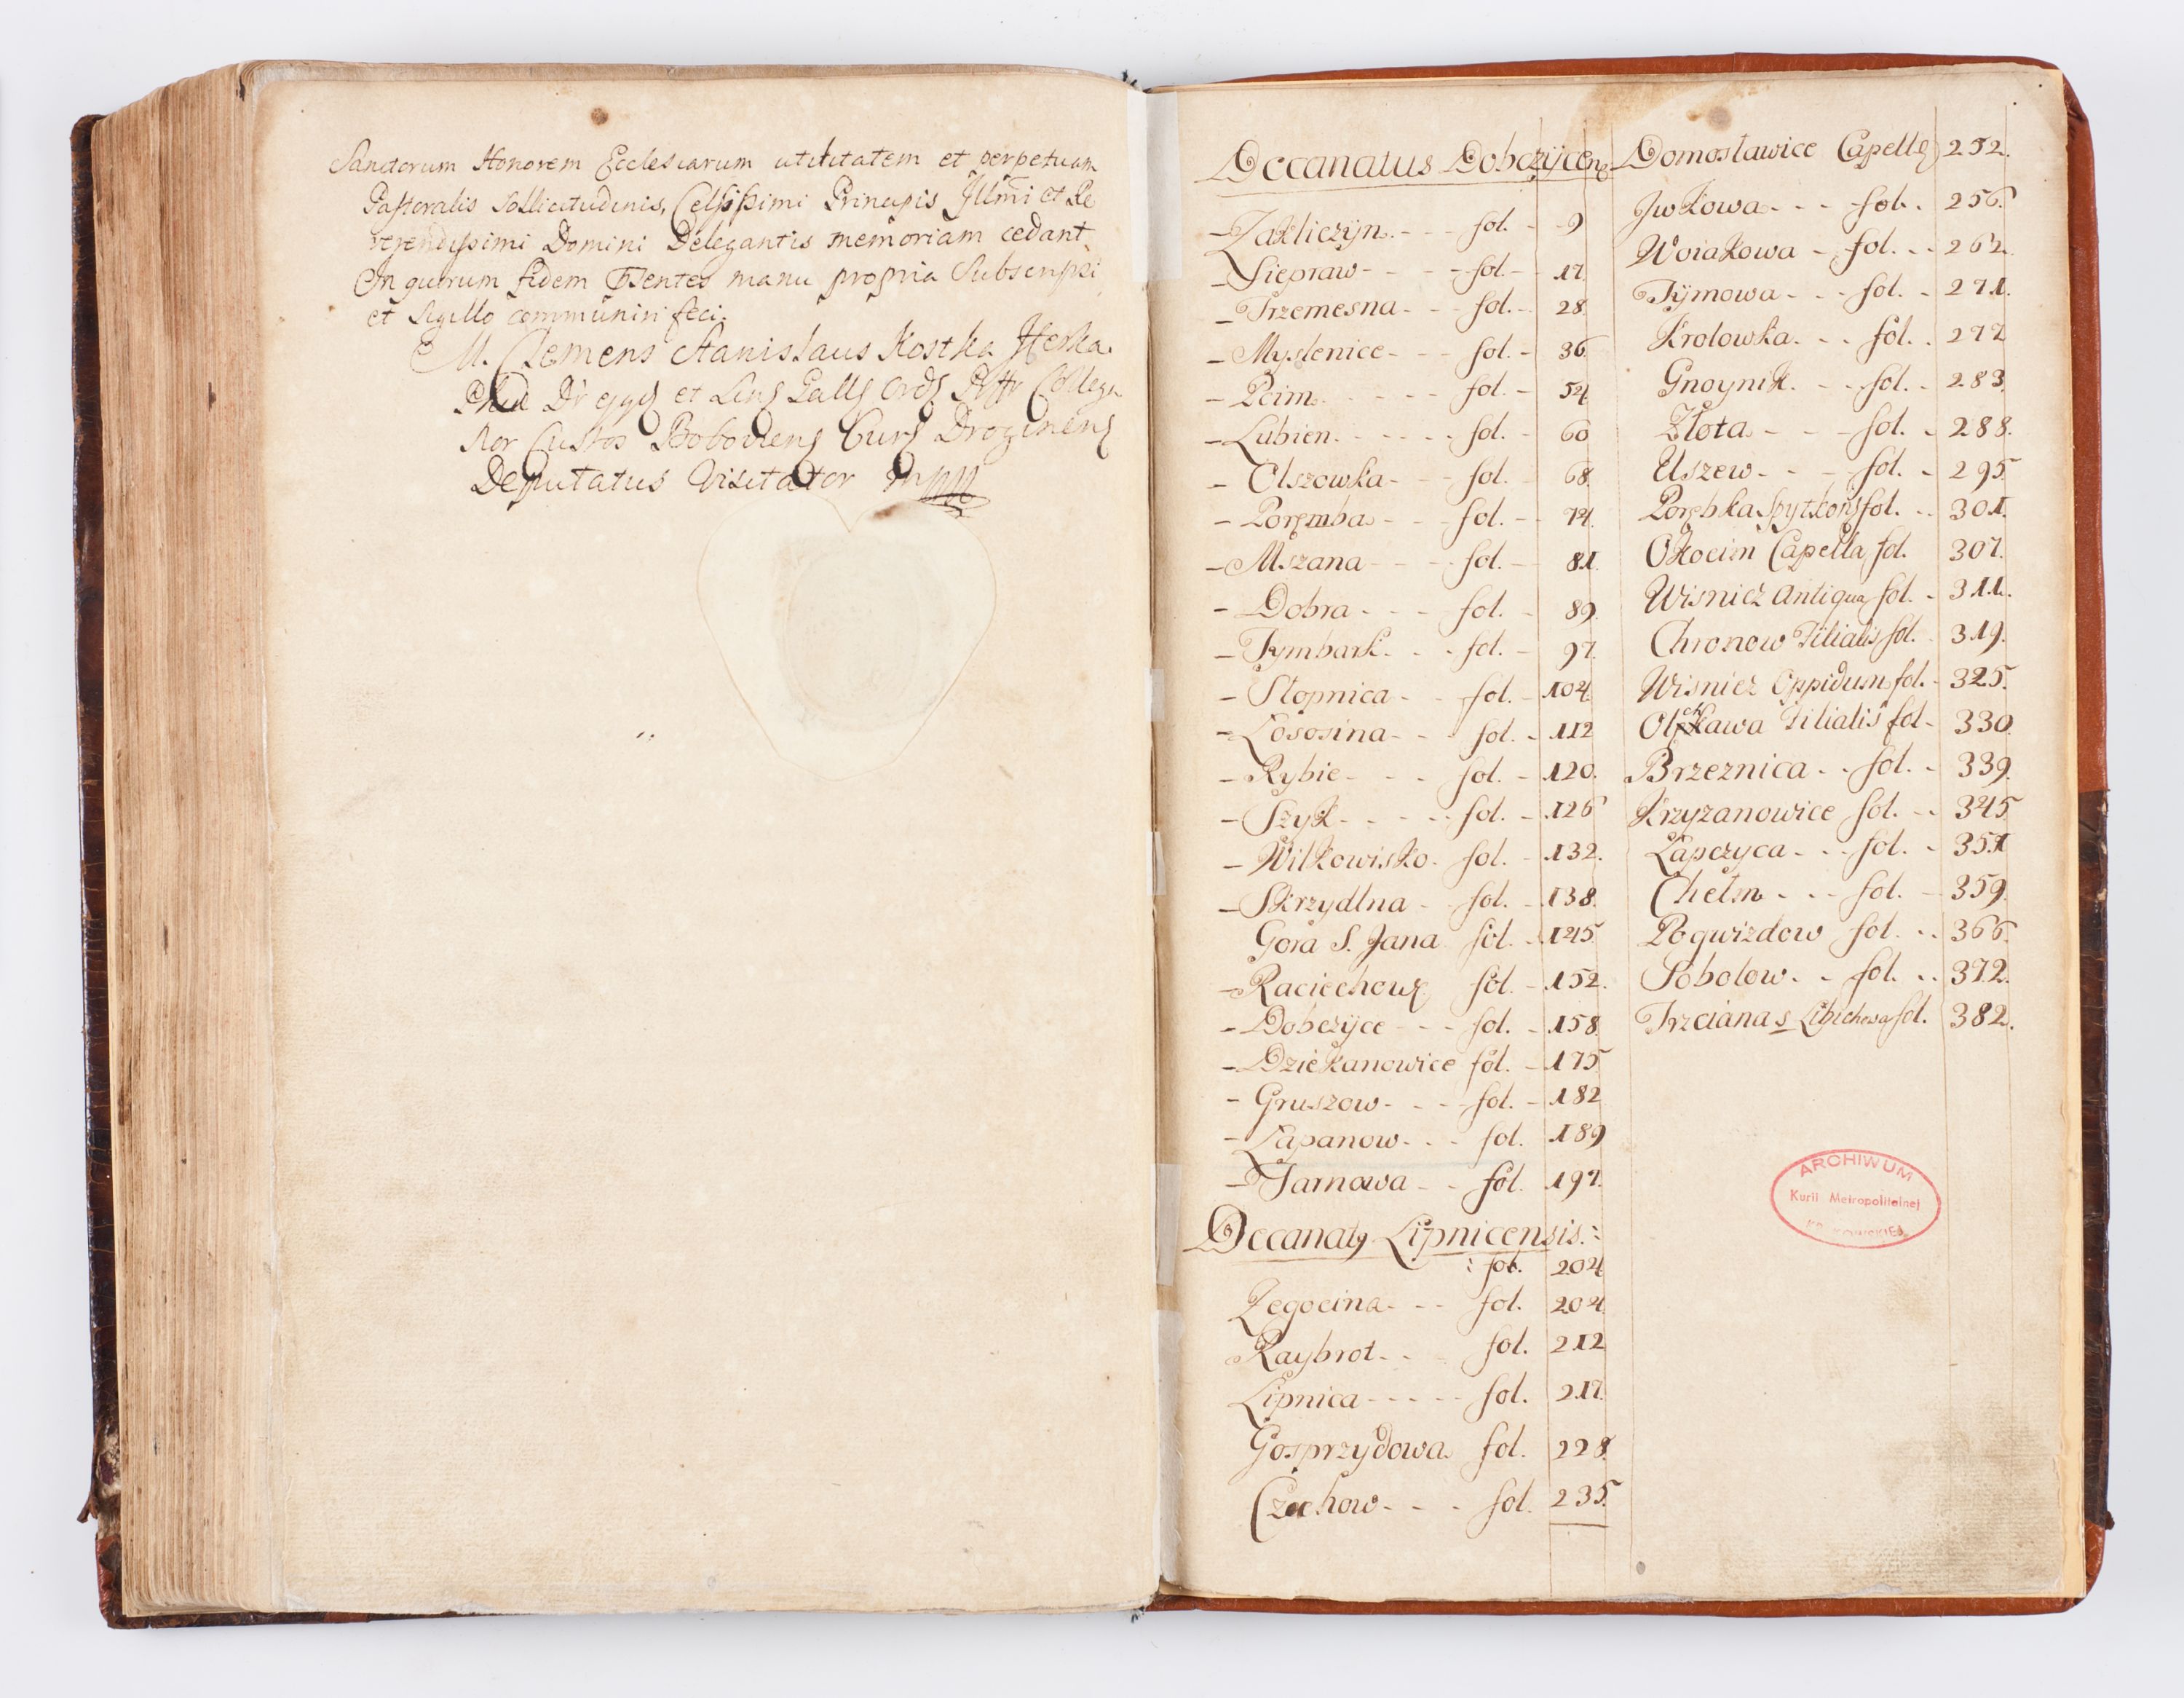 Sanctorum Honorem Ecclesiarum utilitatem et perpetuam
Pastoralis Sollicitudinis, Celsissimi Principis Illmi et Re
verendissimi Domini Delegantis memoriam cedant.
In quorum fidem Psentes manu propria Subscripsi
et Sigillo communiri feci.
M. Clemens Stanislaus Kostka Herka
et
Custos Boboviens Curs Droginens
Deputatus Visitator
Decanatus Dobczÿcens
- Zakliczÿn - - - fol. - 9
- Siepraw - - - fol. - 17.
- Trzemesna - - fol. - 28.
- Myslenice - - - fol. - 36.
- Pcim - - - - fol. - 54
- Lubien - - - - - fol. - 60
- Olszowka - - - fol. 68.
- Poręmba - - - fol. - 74.
- Mszana - - - fol. - 81.
- Dobra - - - fol. - 89.
- Tymbark - - - fol. - 97.
- Slopnica - - fol. - 104.
- Lososina - - - fol. - 112
- Rybie - - - - fol. - 120.
- Szyk - - - - - fol. - 126
- Wilkowisko. fol. - 132.
- Skrzydlna - - fol. - 138.
Gora S. Jana fol. - 145
- Raciechow fol. - 152.
- Dobczÿce - - - fol. - 158
- Dziekanowice fol. - 175
- Gruszow - - - fol. - 182
- Lapanow - - - fol. 189
- Tarnawa - - fol. 197.
Decanatg Lipnicensis. :
: fol. 204
Zegocina - - - fol. 204
Raybrot - - fol. 212
Lipnica - - - - - fol. 217.
Gosprzydowa fol. 228.
Czchow - - - fol. 235.
Domoslawice Capella 252.
Jwkowa - - - fol. 256.
Woiakowa - fol. - - 262
Tÿmowa - - - fol. - 271.
Krolowka - - - fol. - 277
Gnoynik - - - fol. - 283.
Zlota - - - fol. - 288.
Uszew - - - fol. - 295
Porębka Spytkows fol. - - 301.
Okocim Capella fol. 307.
Wisnicz Antiqua fol. - 311.
Chronow Filialis fol. 319.
Wisnicz Oppidum fol. - 325.
Olchawa Filialis fol - 330
Brzeznica - - fol. - 339.
Krzyzanowice fol. - - 345
Lapczyca - - - fol. - 351
Chelm - - - fol. - 359.
Pogwizdow fol. - - 366.
Sobolow - - fol. - - 372.
Trzciana s Libichowa fol. 382.
ARCHIWUM
Kurii Metropolitalnej
KRAKOWSKIEJ